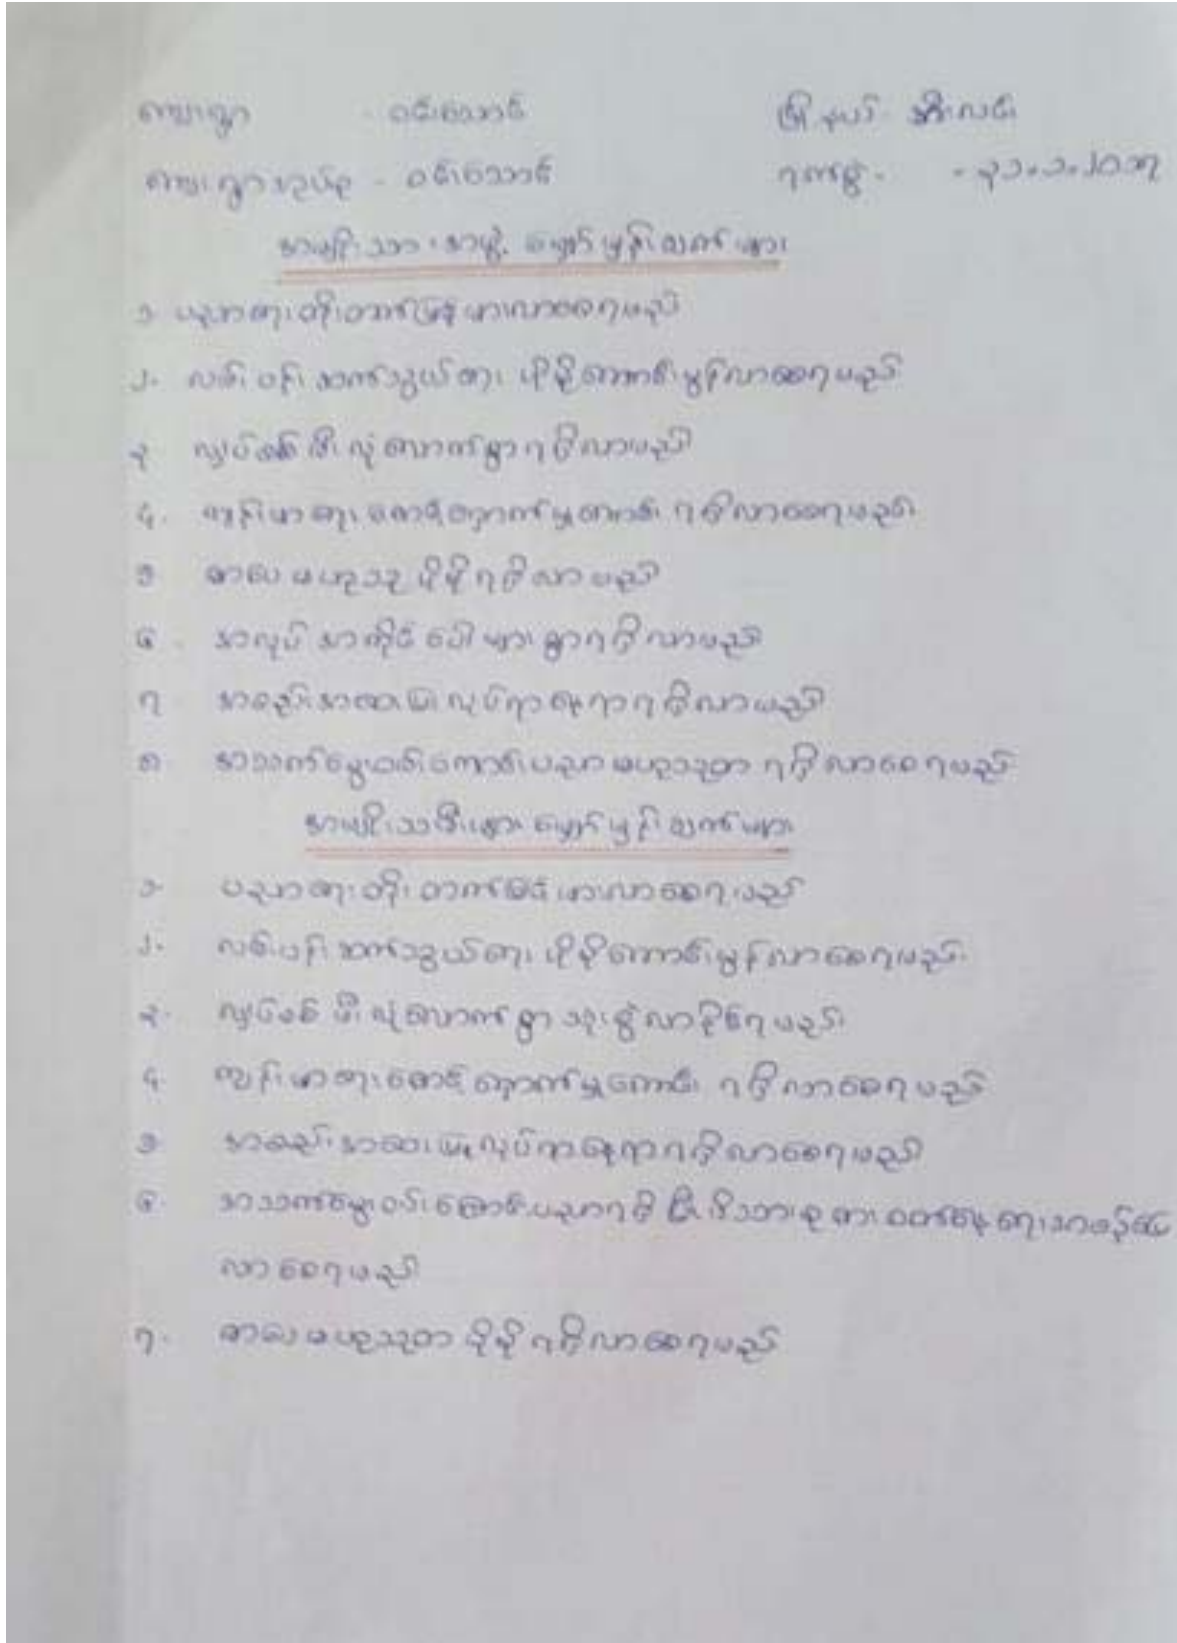 ကျေးရွာ - ဝင်းသောင် မြို့နယ် အင်းလင်း
ကျေးရွာအုပ်စု - ဝင်းသောင် ရက်စွဲ - ၃၁.၁.၂၀၁၇
အမျိုးသားအဖွဲ့ မျှော်မှန်းချက်များ
၁ ပညာရေးတိုးတက်မြင့်မားလာစေရမည်
၂. လမ်းပန်းဆက်သွယ်ရေး ပိုမိုကောင်းမွန်လာစေရမည်
၃ လျှပ်စစ်မီးလုံလောက်စွာရရှိလာမည်
၄. ကျန်းမာရေးစောင့်ရှောက်မှုကောင်း ရရှိလာစေရမည်
၅ စာပေဗဟုသု ပိုမိုရရှိလာမည်
၆. အလုပ်အကိုင်ပေါများစွာရရှိလာမည်
၇ အစည်းအဝေးပြုလုပ်ရာနေရာရရှိလာမည်
၈ အသက်မွေးဝမ်းကျောင်းပညာဗဟုသုတ ရရှိလာစေရမည်
အမျိုးသမီးများ မျှော်မှန်းချက်များ
၁. ပညာရေးတိုးတက်မြင့်မားလာစေရမည်
၂. လမ်းပန်းဆက်သွယ်ရေး ပိုမိုကောင်းမွန်လာစေရမည်
၃. လျှပ်စစ်မီးလုံလောက်စွာ သုံးစွဲလာနိုင်ရမည်
၄. ကျန်းမာရေးစောင့်ရှောက်မှုကောင်း ရရှိလာစေရမည်
၅ အစည်းအဝေးပြုလုပ်ရာနေရာရရှိလာစေရမည်
၆. အသက်မွေးဝမ်းကျောင်းပညာရရှိပြီးမိသားစုစားဝတ်နေရေးအဆင်ပြေ
လာစေရမည်
၇. စာပေဗဟုသုတ ပိုမိုရရှိလာစေရမည်